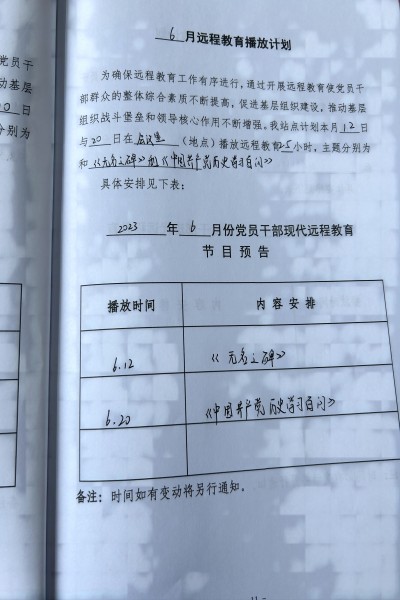 6 月远程教育播放计划
为确保远程教育工作有序进行，通过开展远程教育使党员干
部群众的整体综合素质不断提高，促进基层组织建设，推动基层
组织战斗堡垒和领导核心作用不断增强。我站点计划本月 12 日
与 20 日在 会议室 （地点）播放远程教育 2.5 小时，主题分别为
和《无名之碑》和《中国共产党历史学习百问》
具体安排见下表：
2023 年 6 月份党员干部现代远程教育
节目预告
播放时间 内容安排
6.12 《无名之碑》
6.20 《中国共产党历史学习百问》
备注：时间如有变动将另行通知。
党员干
动基层
0 日
分别为